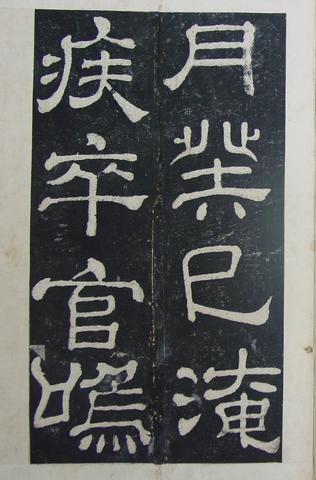 月癸巳淹
疾卒官嗚